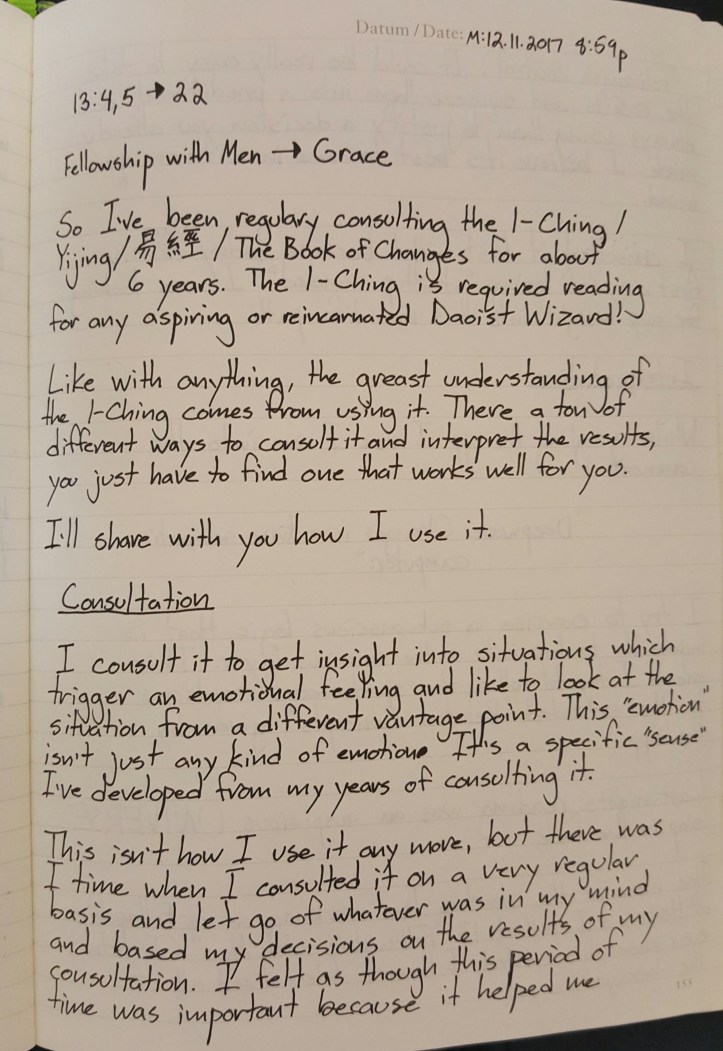 Datum / Date: M:12.11.2017 8:59p
13:4,5 → 22
Fellowship with Men → Grace
So I've been regulary consulting the I-Ching /
Yijing/易經/The Book of Changes for about
6 years. The I-Ching is required reading
for any aspiring or reincarnated Daoist Wizard!
Like with anything, the greast understanding of
the I-Ching comes from using it. There a ton of
different ways to consult it and interpret the results,
you just have to find one that works well for you.
I'll share with you how I use it.
Consultation
I consult it to get insight into situations which
trigger an emotional feeling and like to look at the
situation from a different vantage point. This "emotion"
isn't just any kind of emotion. It's a specific "sense"
I've developed from my years of consulting it.
This isn't how I use it any more, but there was
I time when I consulted it on a very regular
basis and let go of whatever was in my mind
and based my decisions on the results of my
consultation. I felt as though this period of
time was important because it helped me